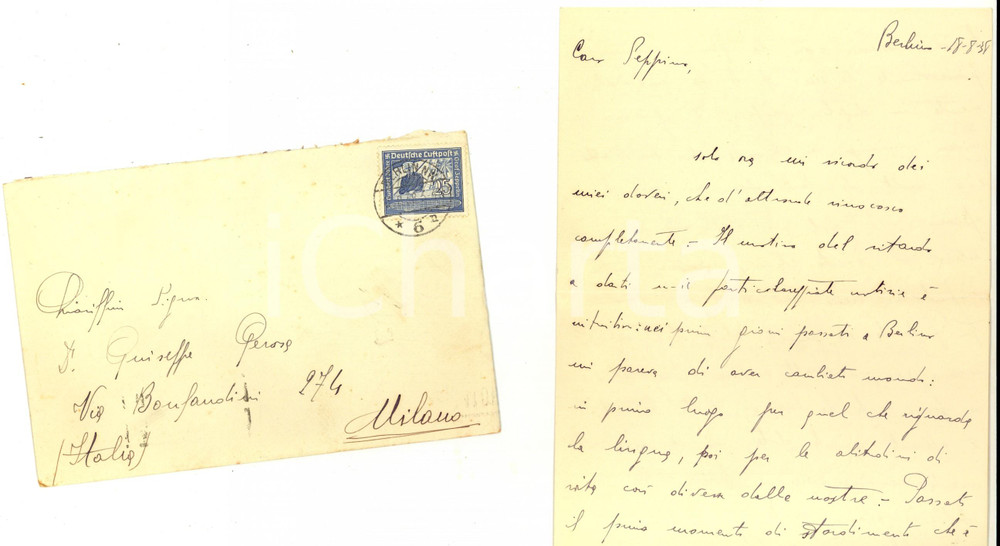 Deutsche Luftpost
25
6
Chiariffimo Signor
D. Guiseppe Gerosa
Via Bonfandini 274
Milano
(Italia)
iCharta
Berlino - 18-8-38
Caro Peppino,
solo ora mi ricordo dei
miei doveri, che d'altronde rinnosco
completamente - Il motivo del ritardo
a darti mie particolareggiate notizie è
nei primi giorni passati a Berlino
mi pareva di aver cambiato mondo:
in primo luogo per quel che riguarda
la lingua, poi per le abitudini di
vita così diverse dalle nostre - Passato
il primo momento di stordimento che è